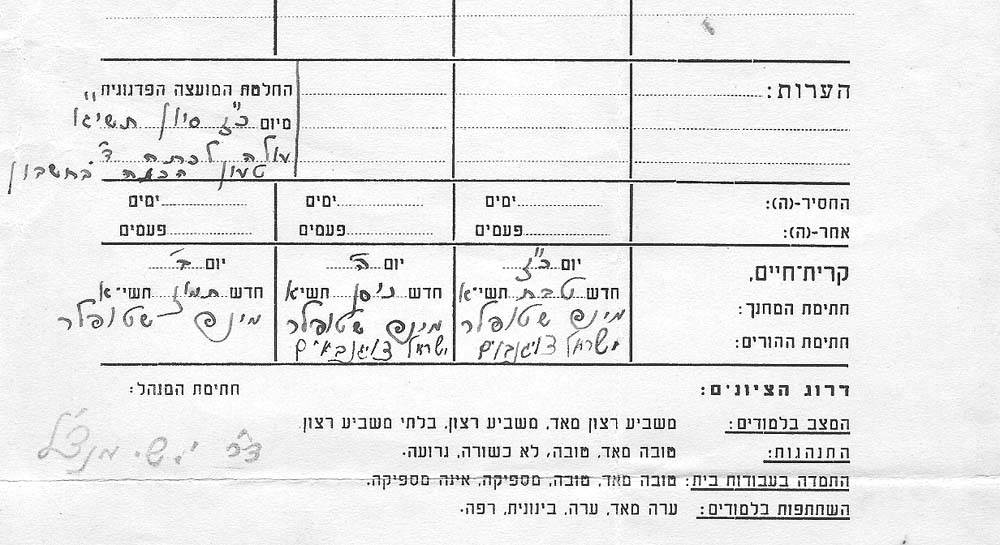 הערות:
החלטת המועצה הפדגוגית
מיום כ"ז סיון תשי"א
עולה לכתה ד'
טעון הכאה בחשבון
החסיר-(ה): ימים ימים ימים
אחר-(ה): פעמים פעמים פעמים
קרית־חיים, יום כ"ז יום ה' יום ב'
חדש טבת תשי"א חדש ניסן תשי"א חדש תמוז תשי"א
חתימת המחנך: מינה שטופלר מינה שטופלר מינה שטופלר
חתימת ההורים: ישראל ישראל
דרוג הציונים: חתימת המנהל:
המצב בלמודים: משביע רצון מאד, משביע רצון, בלתי משביע רצון
התנהגות: טובה מאד, טובה, לא כשורה, גרועה.
התמדה בעבודות בית: טובה מאד, טובה, מספיקה, אינה מספיקה.
השתתפות בלמודים: ערה מאד, ערה, בינונית, רפה.